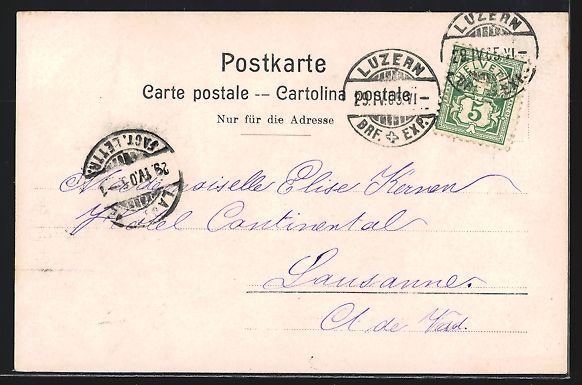 Postkarte
Carte postale -- Cartolina postale
Nur für die Adresse
LUZERN
29.IV.05.VI-
BRF. EXP.
LUZERN
29.IV.05.VI-
HELVETIA
5
29.IV.05
Mademoiselle Elise Kernen
Hotel Continental
Lausanne.
Ct de Vaud.